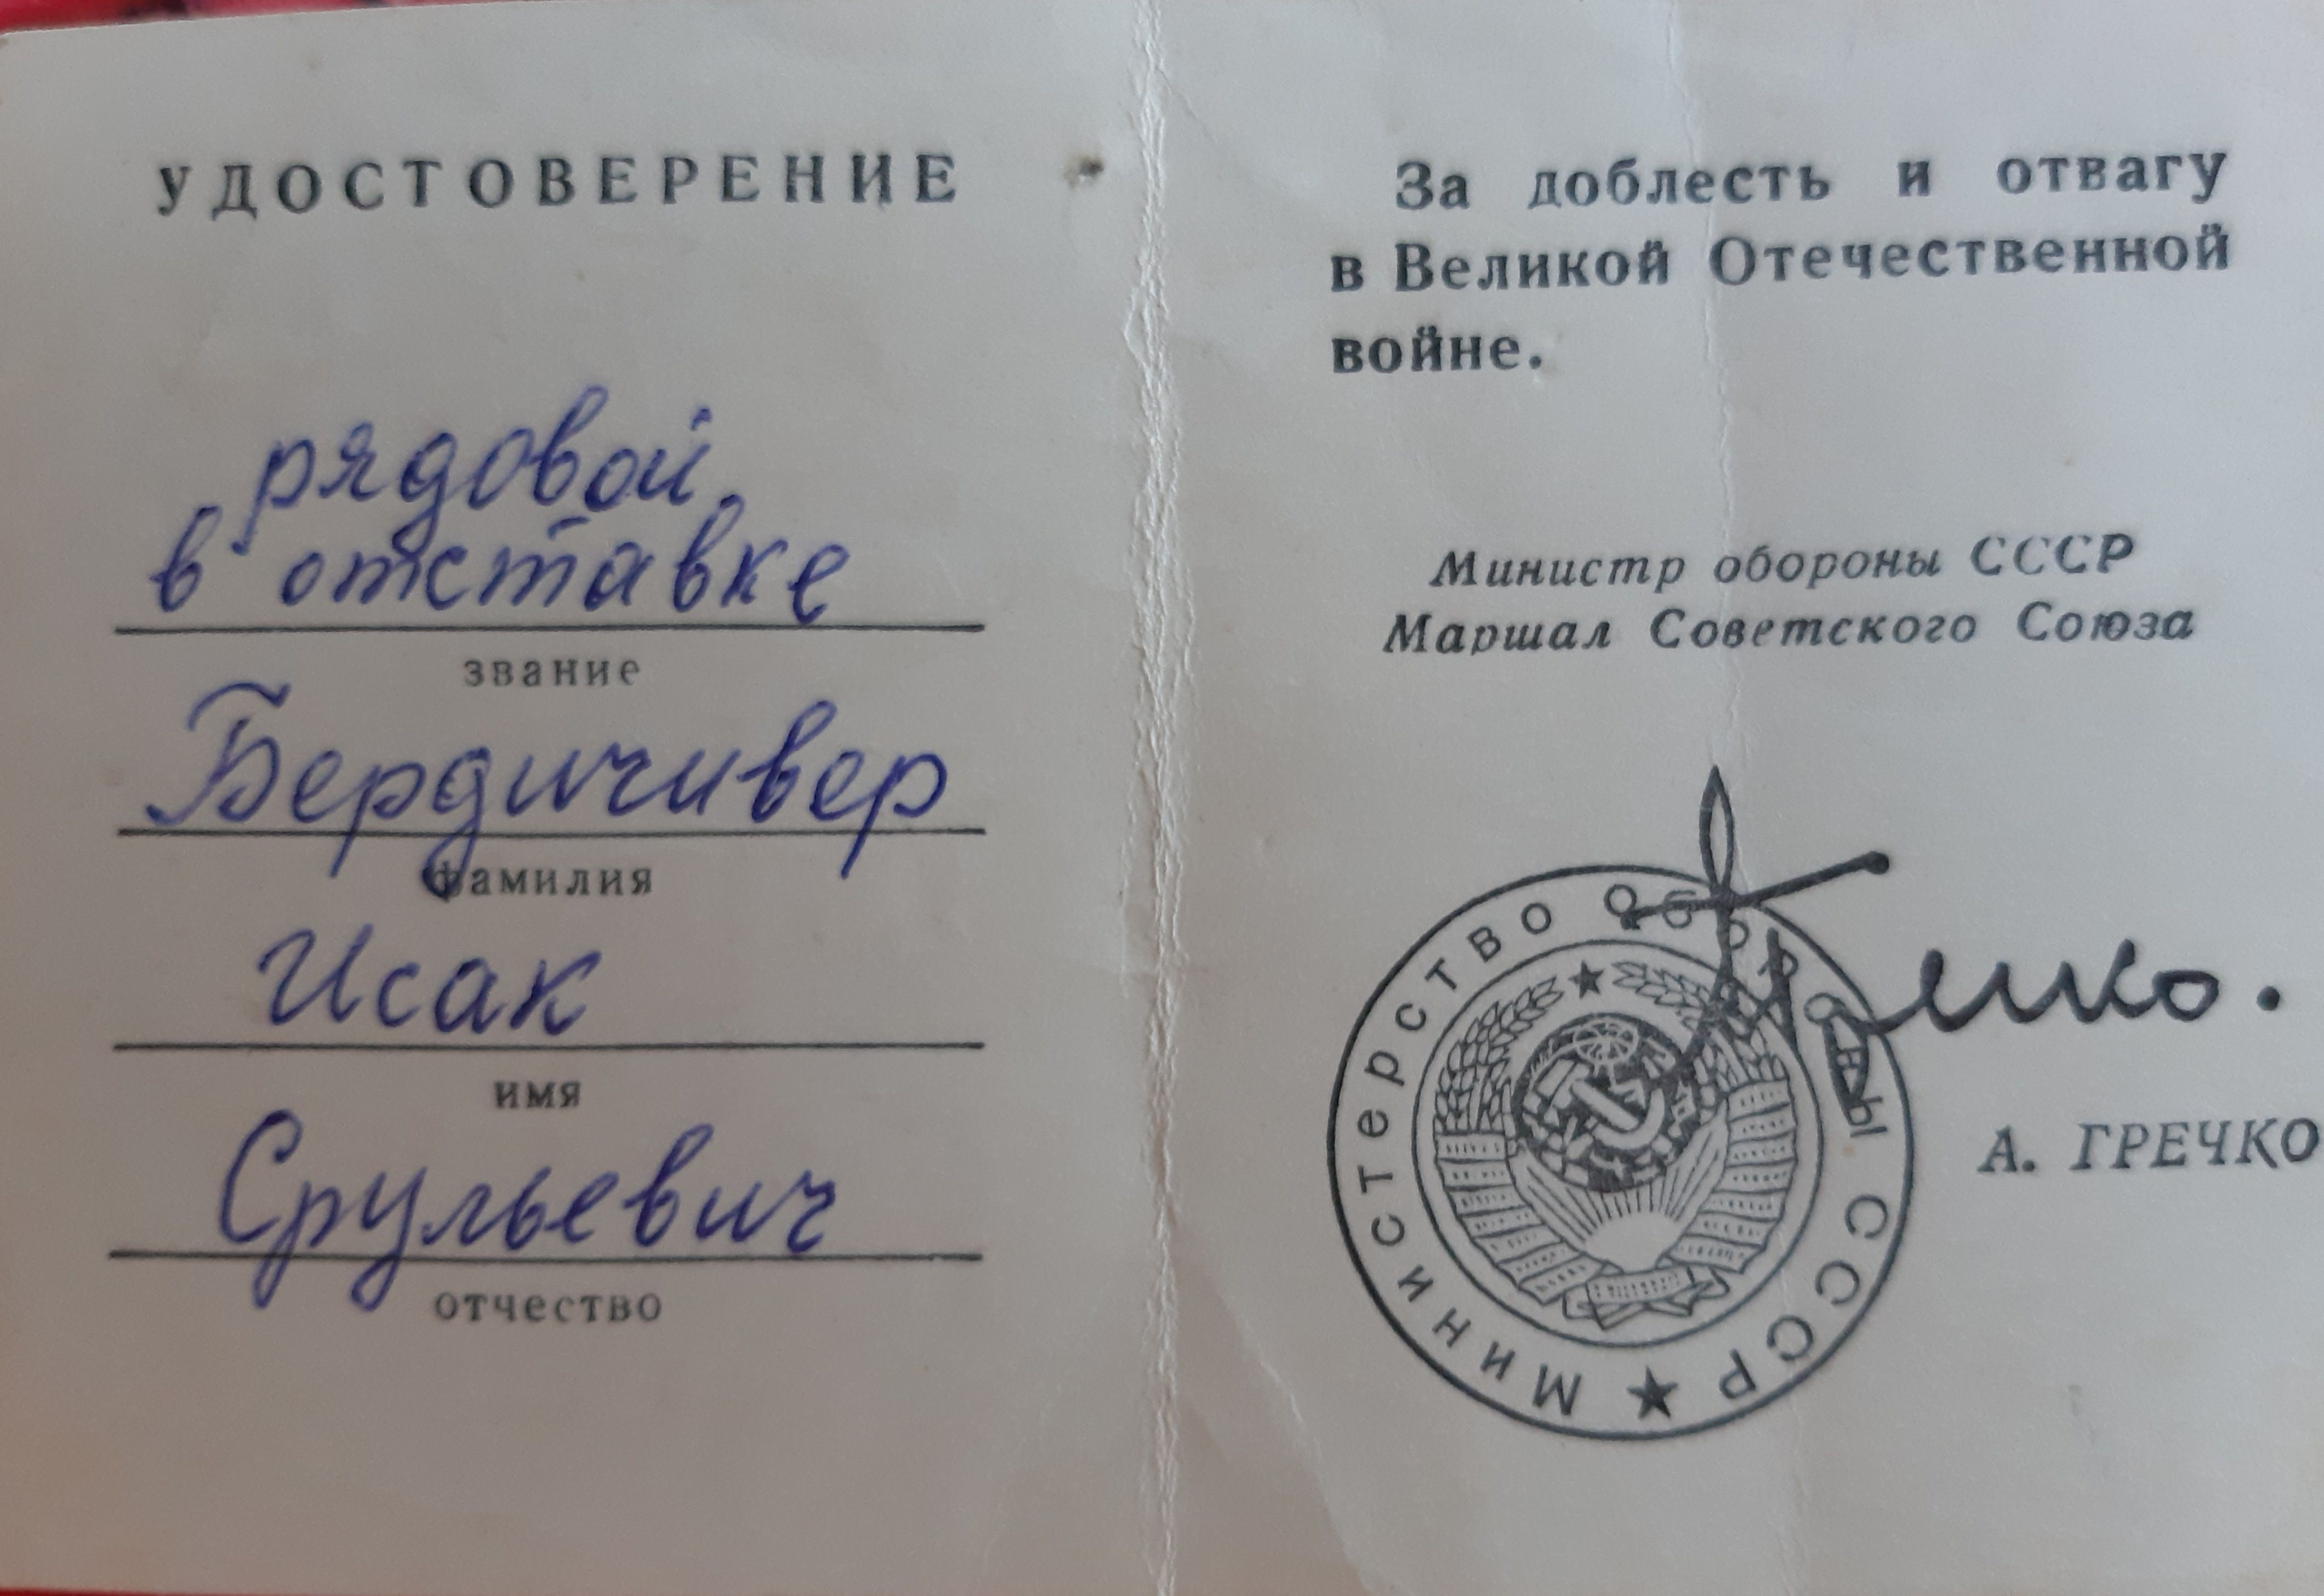 УДОСТОВЕРЕНИЕ
рядовой
в отставке
звание
Бердичивер
фамилия
Исак
имя
Срульевич
отчество
За доблесть и отвагу
в Великой Отечественной
войне.
Министр обороны СССР
Маршал Советского Союза
Гречко.
Министерство обороны СССР ★
А. ГРЕЧКО